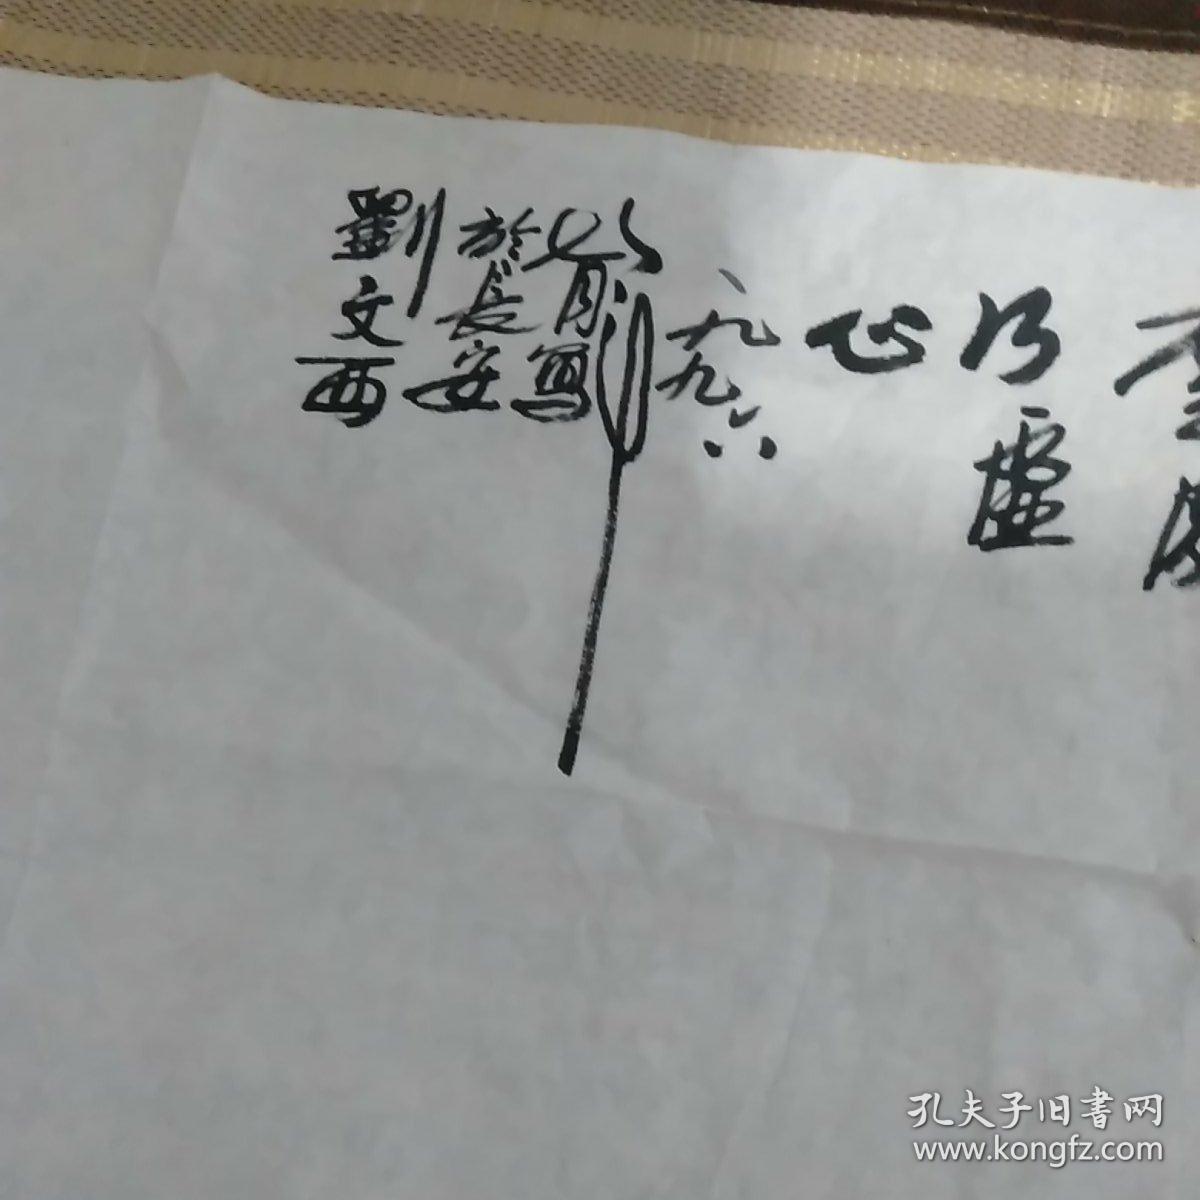 乃虚
心
一九九六
年
六月写
於長安
劉文西
孔夫子旧書网
www.kongfz.com